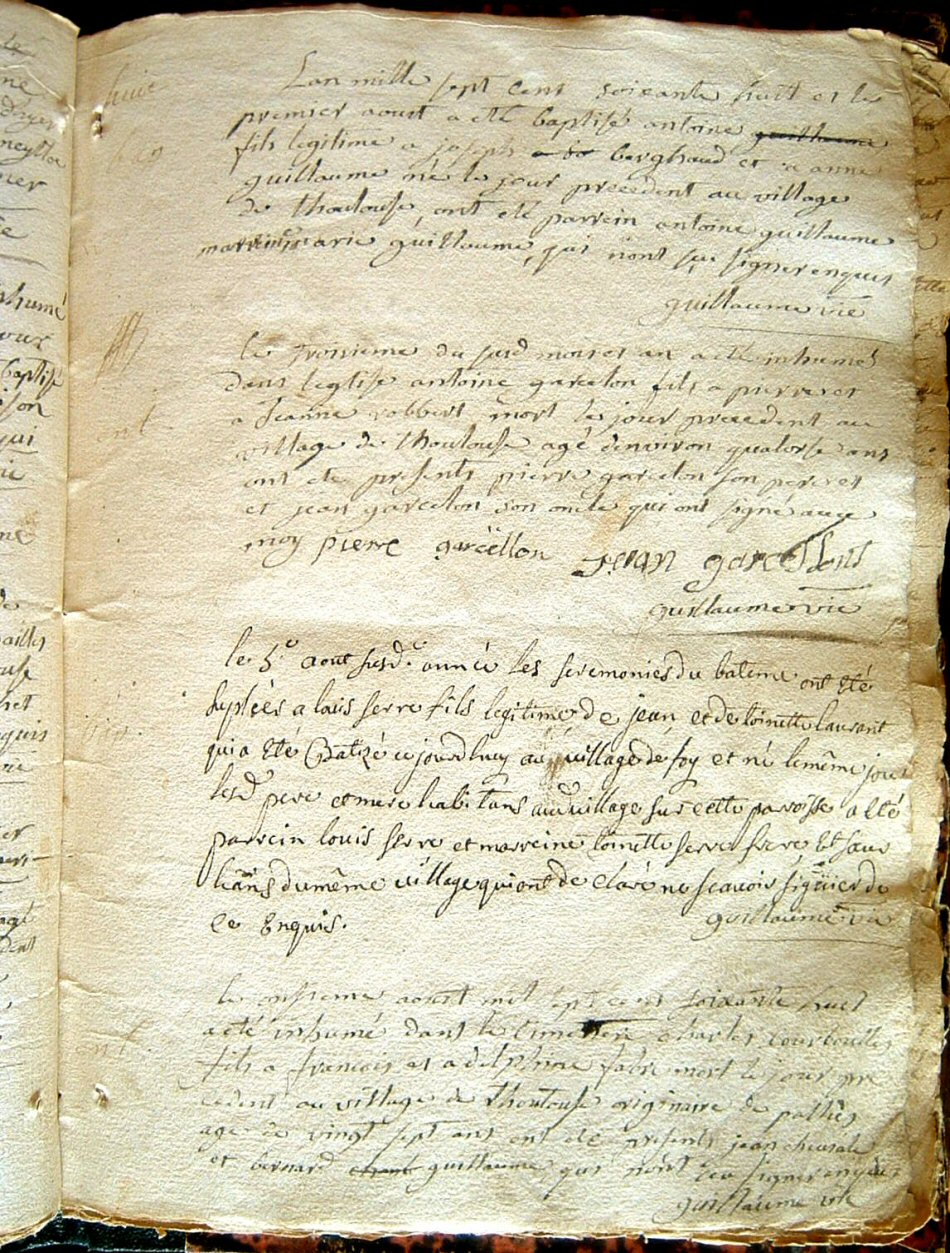 Lan mille sept cent soixante huit et le
premier aoust a eté baptisé antoine guillaume
fils legitime a joseph berghaud et a anne
guillaume né le jour precedent au village
de thoulouse, ont eté parrein antoine guillaume
marrine marie guillaume, qui n'ont sçu signer enquis
guillaume vic
le troisieme du susd mois et an a eté inhumé
dans leglise antoine garcelon fils a pierre et
a Jeanne robbert mort le jour precedent au
village de thoulouse agé denviron quatorse ans
ont eté presents pierre garcelon son pere et
et jean garcelon son oncle qui ont signé avec
moy pierre garcellon jean garcellons
guillaume vic
le 5e aout susd.e année les seremonies du bateme ont été
supléés a louis serre fils legitime de jean et de toinette laurant
qui a été Batizé cejourdhuy au village de foy et né le même jour
lesd. pere et mere habitans aud. village sur cette paroisse a été
parrein louis serre et marreine toinette serre frere Et sœur
du même village qui ont declaré ne scavoir signier de
ce Enquis.
guillaume vic
le onsieme aoust mil sept cent soixante huit
a eté inhumé dans le cimetiere charles
fils a francois et a delphine fabre mort le jour pre
cedent au village de thoulouse originaire de
age de vingt sept ans ont eté presents jean
et bernard guillaume qui n'ont sçu signer enquis
guillaume vic